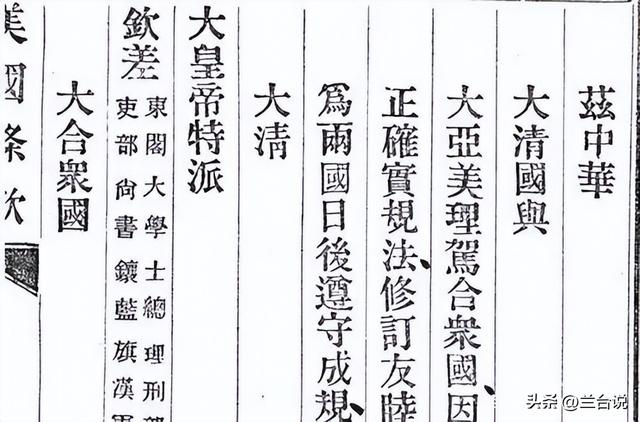 茲中華
大清國與
大亞美理駕合衆國、因
正確實規法、修訂友睦
爲兩國日後遵守成規、
大清
大皇帝特派
欽差
東閣大學士總理刑部
吏部尙書鑲藍旗漢軍
大合衆國
美國條款
头条 @兰台说